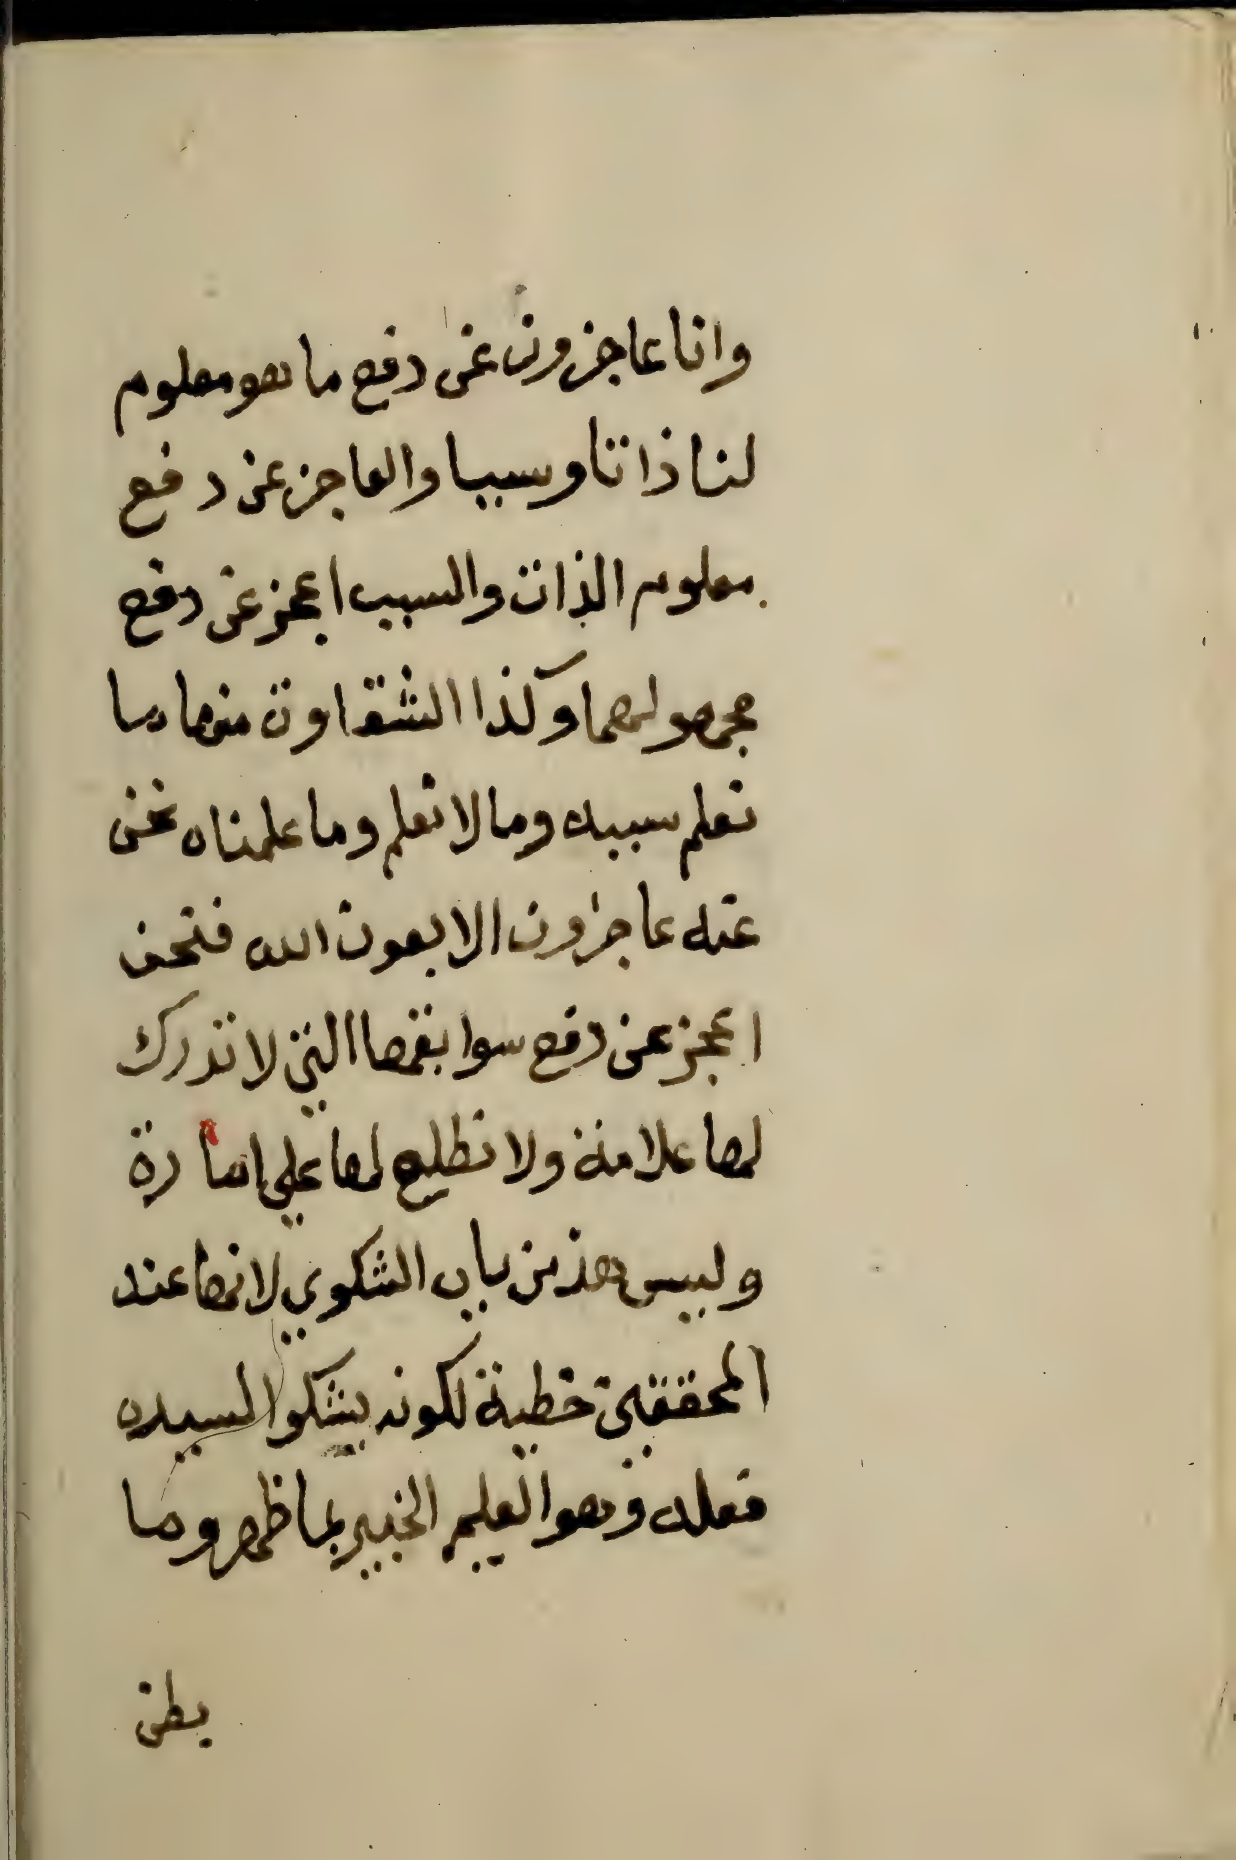 وانا عاجزون عن دفع ما هو معلوم
لنا ذاتا وسببا والعاجز عن دفع
معلوم الذات والسبب اعجز عن دفع
مجهولهما وكذا الشقاوة منها ما
نعلم سببه وما لا نعلم وما علمناه نحن
عنه عاجزون الا بعون الله فنحن
اعجز عن دفع سوابقها التي لا ندرك
لها علامة ولا نطلع لها علي امارة
وليس هذ من باب الشكوي لانها عند
المحققين خطية لكونه يشكوا لسيده
فعله وهو العليم الخبير بما ظهر وما
بطن